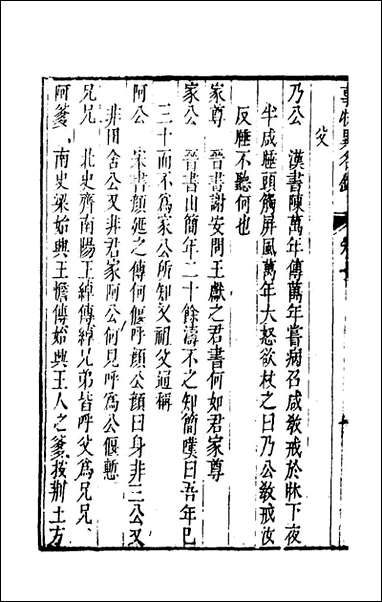 事物異名錄 卷十
父
乃公 漢書陳萬年傳萬年嘗病召咸敎戒於牀下夜
半咸睡頭觸屏風萬年大怒欲杖之曰乃公敎戒汝
反睡不聽何也
家尊 晉書謝安問王獻之君書何如君家尊
家公 晉書山簡年二十餘濤不之知簡嘆曰吾年已
三十而不爲家公所知又祖父通稱
阿公 宋書顏延之傳何偃呼顏公顏曰身非三公又
非田舍公又非君家阿公何見呼爲公偃慙
兄兄 北史齊南陽王綽傳綽兄弟皆呼父爲兄兄
阿爹 南史梁始興王憺傳始興王人之爹按荆土方